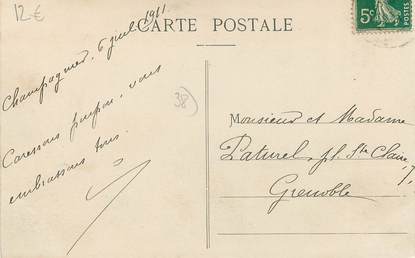 12 €
CARTE POSTALE
5c
POSTES
Champagnier, 6 juil 1911
38
Caressons poupon, vous
embrassons tous.
Monsieur et Madame
Paturel, pl. Ste Claire, 7,
Grenoble